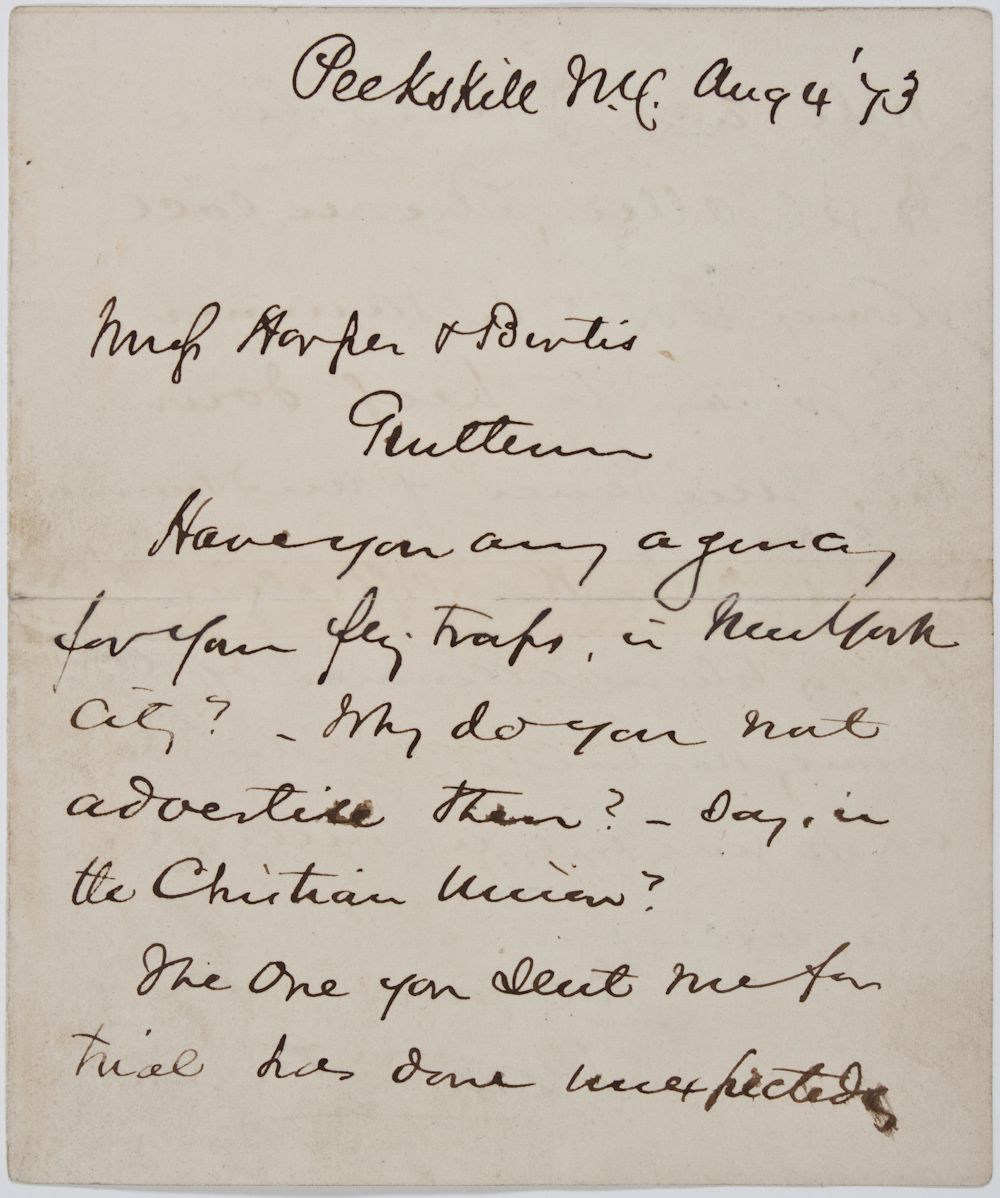 Peekskill N.Y. Aug 4 '73
Messrs Harper & Bertis
Gentlemen
Have you any agency
for your fly-traps, in New York
City? - Why do you not
advertise them? - Say, in
the Christian Union?
The One you sent me for
trial has done unexpectedly